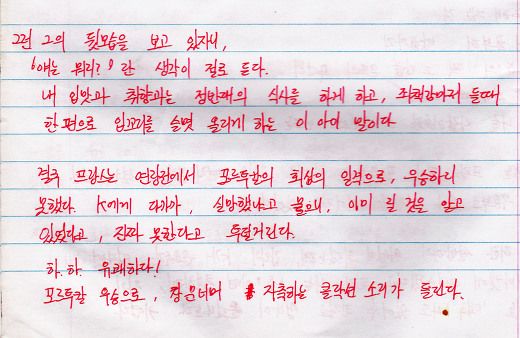 그런 그의 뒷모습을 보고 있자니,
'얘는 뭐지?' 란 생각이 절로 든다.
내 입맛과 취향과는 정반대의 식사를 하게 하고, 죄책감마저 들때
한편으로 입꼬리를 슬몃 올리게 하는 이 아이 말이다
결국 프랑스는 연장전에서 포르투갈의 회심의 일격으로, 우승하지
못했다. K에게 다가가, 실망했냐고 물으니, 이미 질 것을 알고
있었다고, 진짜 못한다고 투덜거린다.
하.하. 유쾌하다!
포르투갈 우승으로, 창문너머 자축하는 클락션 소리가 들린다.